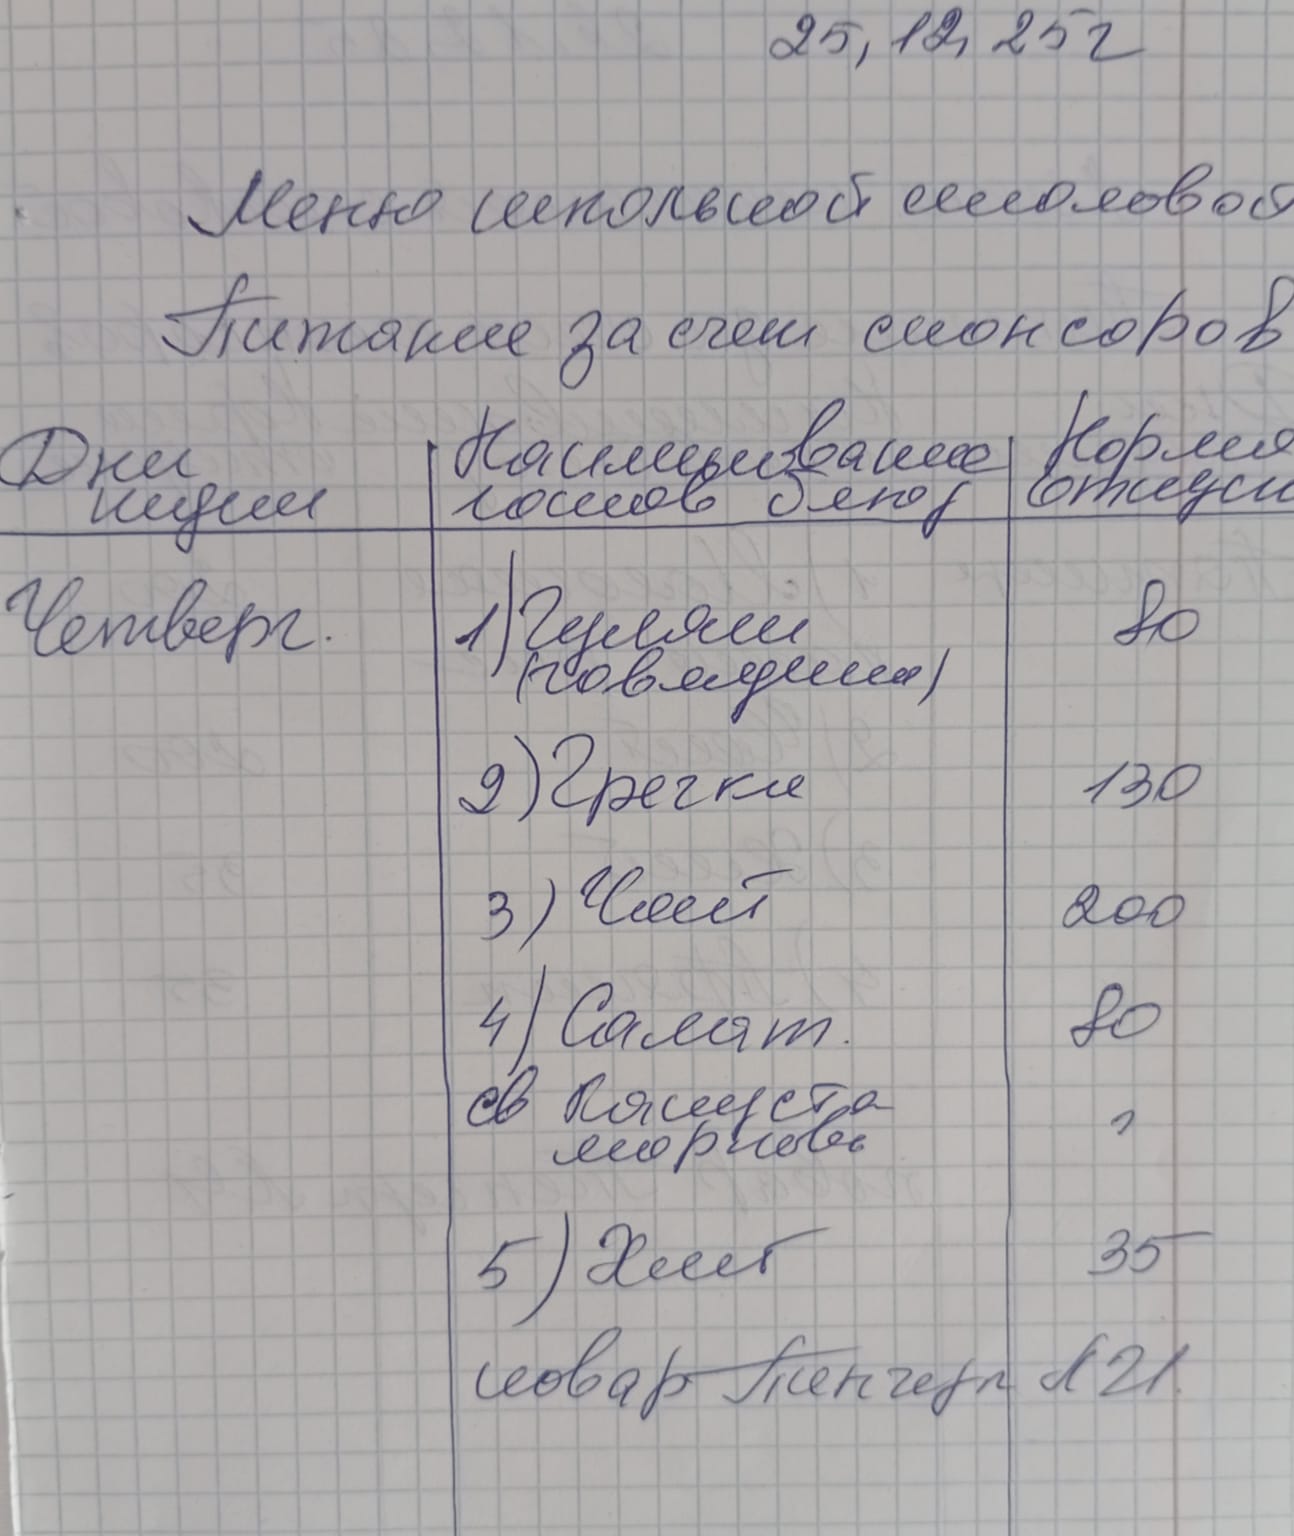 25,12,25г
Меню школьной столовой
Питание за счет спонсоров
Дни
недели
Наименование
готов блюд
Норма
отпуск
Четверг.
1) Гуляш 80
(говядина)
2) Гречка 130
3) Чай 200
4) Салат. 80
св капуста
морковь
5) Хлеб 35
повар